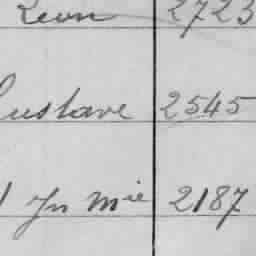 Léon 2723
Gustave 2545
Jn Mie 2187